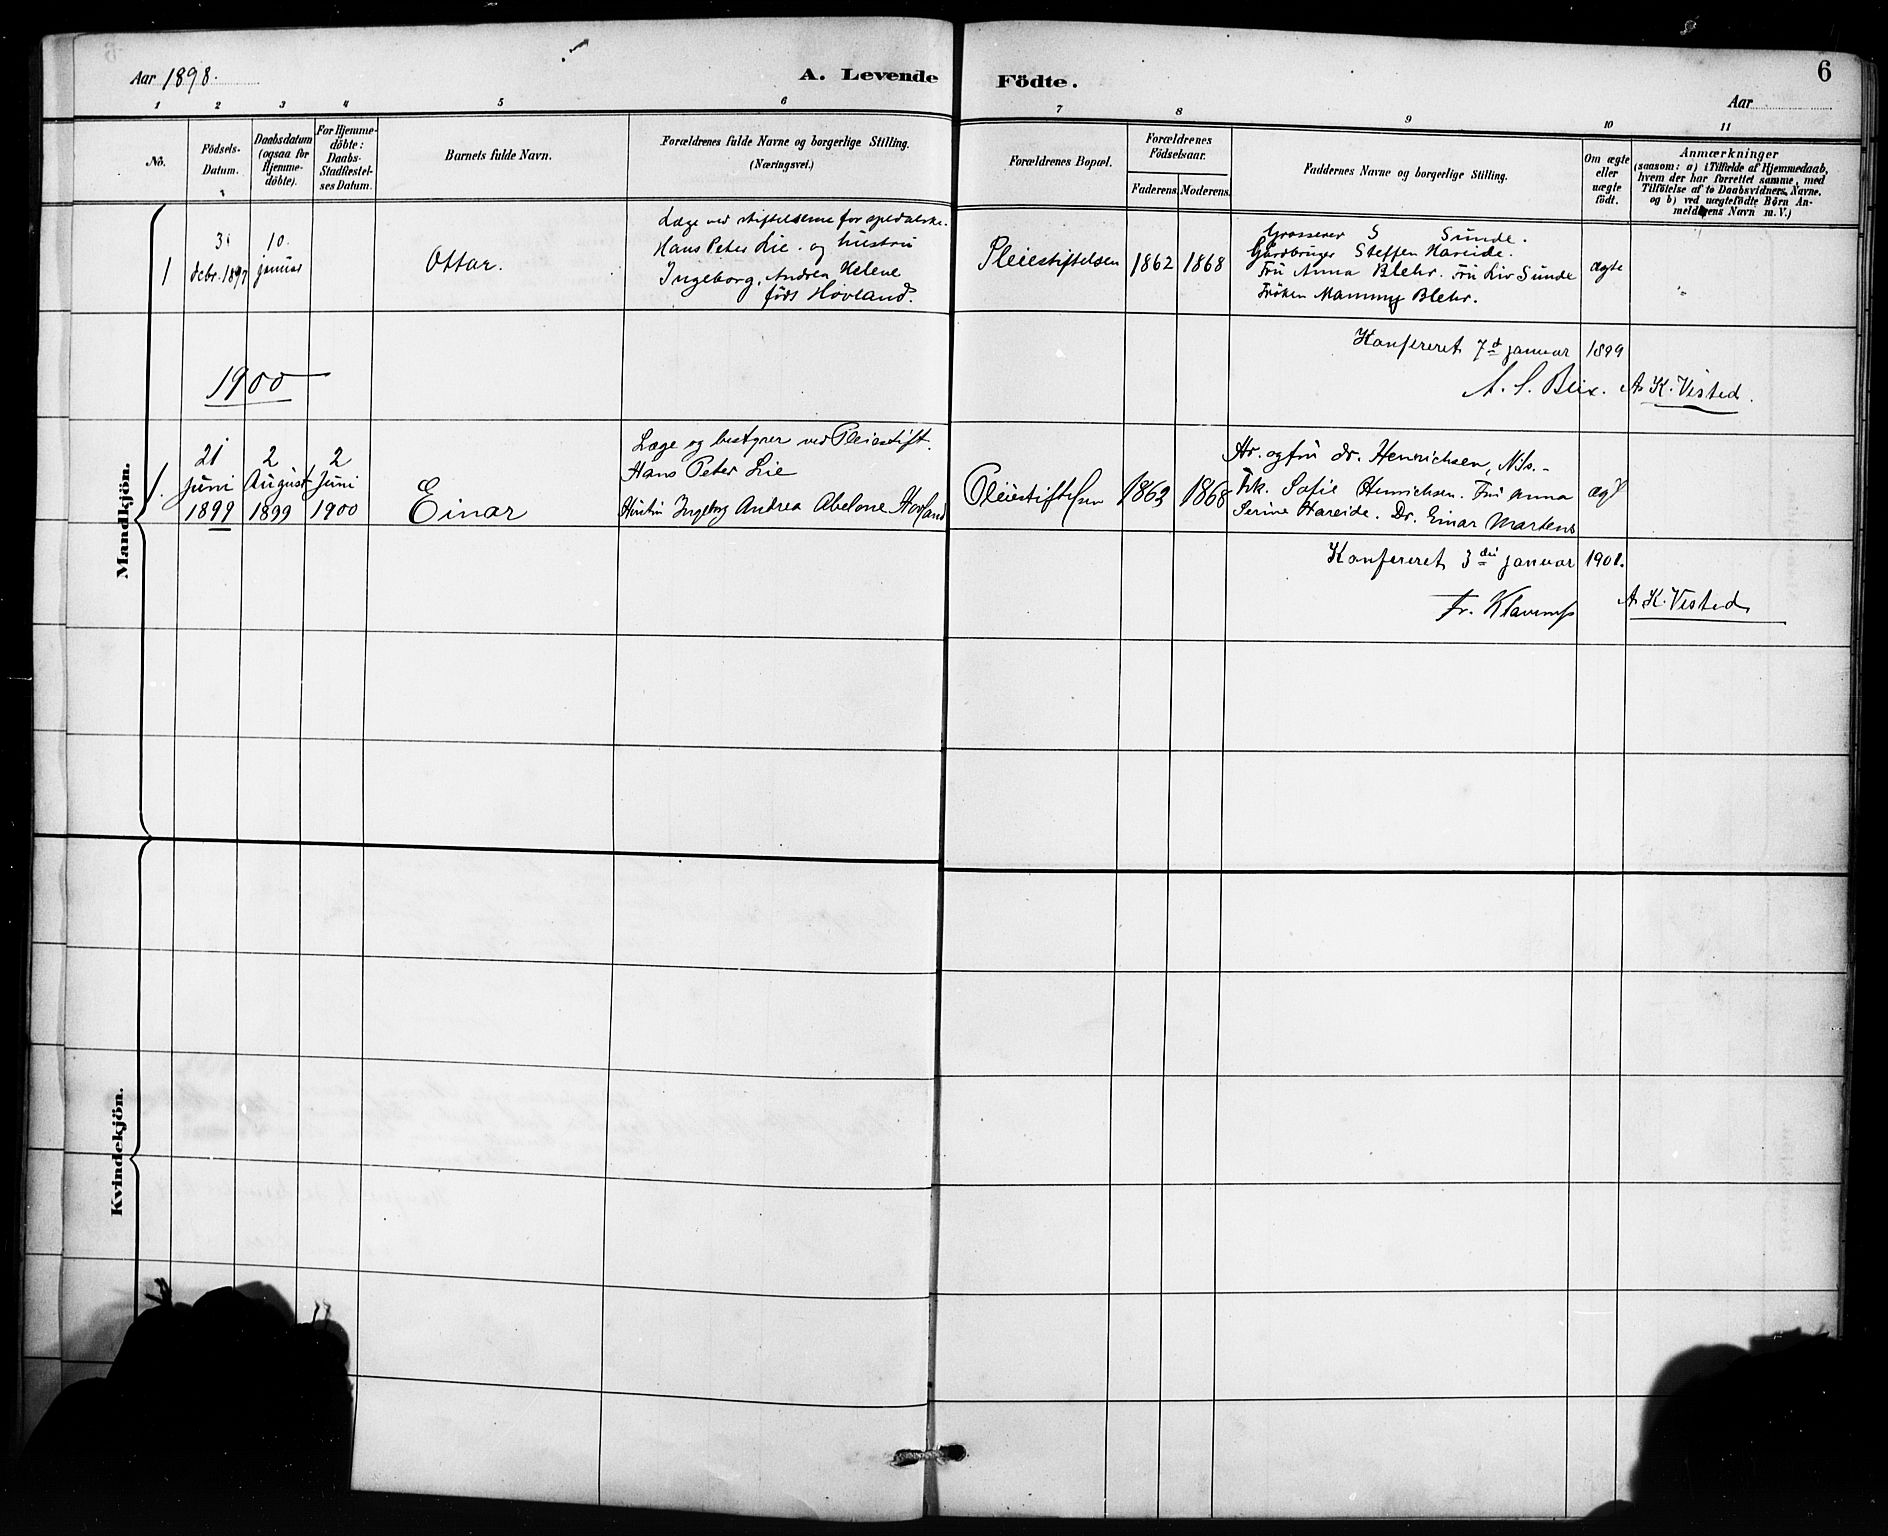 6
Aar 1898.
A. Levende Födte.
Aar
1 2 3 4 5 6 7 8 9 10 11
Nô.
Födsels-
Datum.
Daabsdatum
(ogsaa for
Hjemme-
döbte).
For Hjemme-
döbte:
Daabs-
Stadfæstel-
ses Datum.
Barnets fulde Navn.
Forældrenes fulde Navne og borgerlige Stilling.
(Næringsvei.)
Forældrenes Bopæl.
Forældrenes
Födselsaar.
Faderens.
Moderens.
Faddernes Navne og borgerlige Stilling.
Om ægte
eller
uægte
født.
Anmærkninger
(saasom: a) i Tilfælde af Hjemmedaab,
hvem der har forrettet samme, med
Tilföielse af to Daabsvidners Navne.
og b) ved uægtefödte Börn An-
melderens Navn m. V.)
Mandkjön.
1
decbr. 1897
10.
januar
Ottar.
Læge ved stiftelserne for spedalske.
Hans Peter Lie. og hustru
Ingeborg, Andrea Helene
født Hovland.
Pleiestiftelsen
1862
1868
Grosserer S Sunde.
Gårdbruger Steffen Hareide.
Fru Anna Blehr. Fru Liv Sunde
Frøken Mammy Blehr.
ægte
"
Konfereret 7d januar 1899
A. S. Blix. A. K. Visted.
1900
1.
21
juni
1899
2
August
1899
2
Juni
1900
Einar
Læge og bestyrer ved Pleiestift.
Hans Peter Lie
Hustru Ingeborg Andrea Abelone Hovland
Pleiestiftelsen
1862
1868
Hr. og fru dr. Henrichsen, Nils.-
Frk. Sofie Henrichsen. Fru Anna
Serine Hareide. Dr. Einar Martens
ægt
Konfereret 3die januar 1901.
A. K. Visted
Kvindekjön.